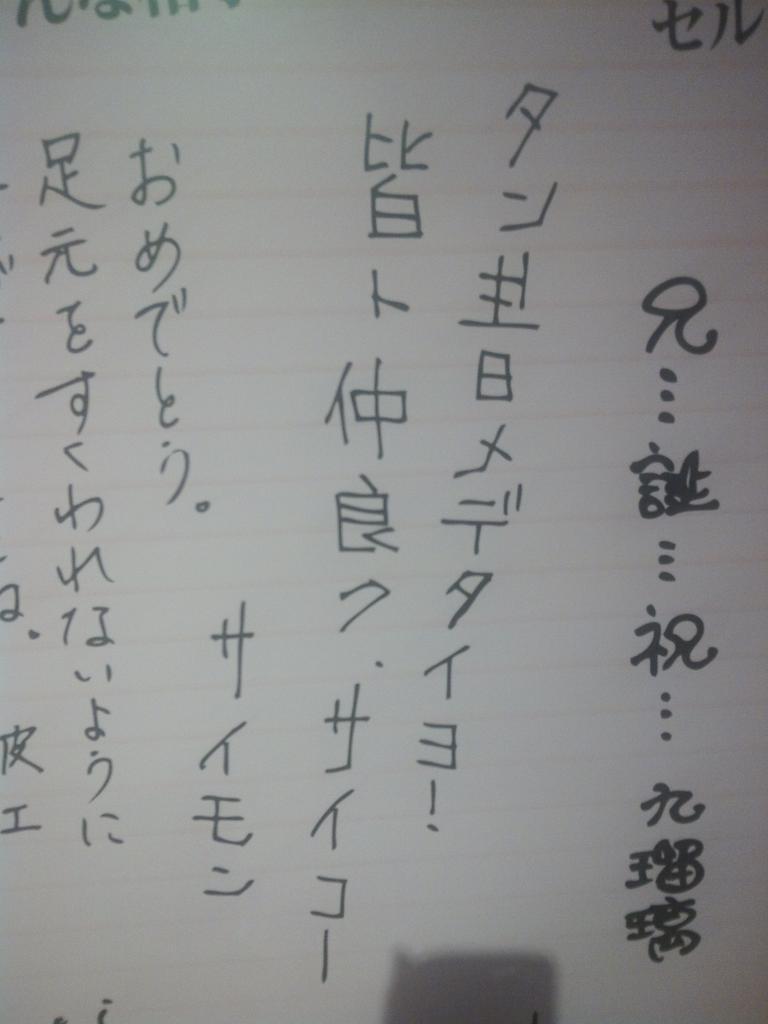 セル
兄…誕…祝…九瑠璃
タン生日メデタイヨ!
皆ト仲良ク.サイコー
サイモン
おめでとう。
足元をすくわれないように